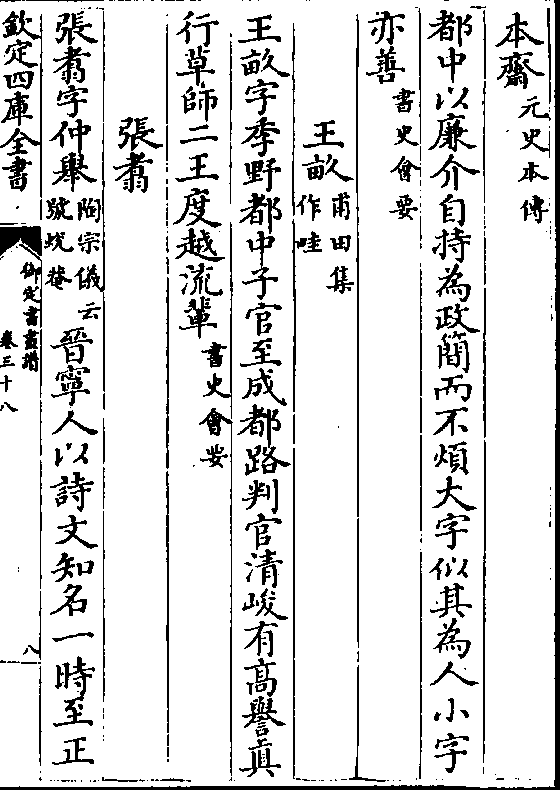 本齋元史本傳
都中以廉介自持為政簡而不煩大字似其為人小字
亦善書史會要
王畝甫田集作畦
王畝字季野都中子官至成都路判官清峻有高譽真
行草師二王度越流輩書史會要
張翥
張翥字仲舉陶宗儀云號蛻菴晉寧人以詩文知名一時至正
欽定四庫全書
御定書畫譜
卷三十八
八